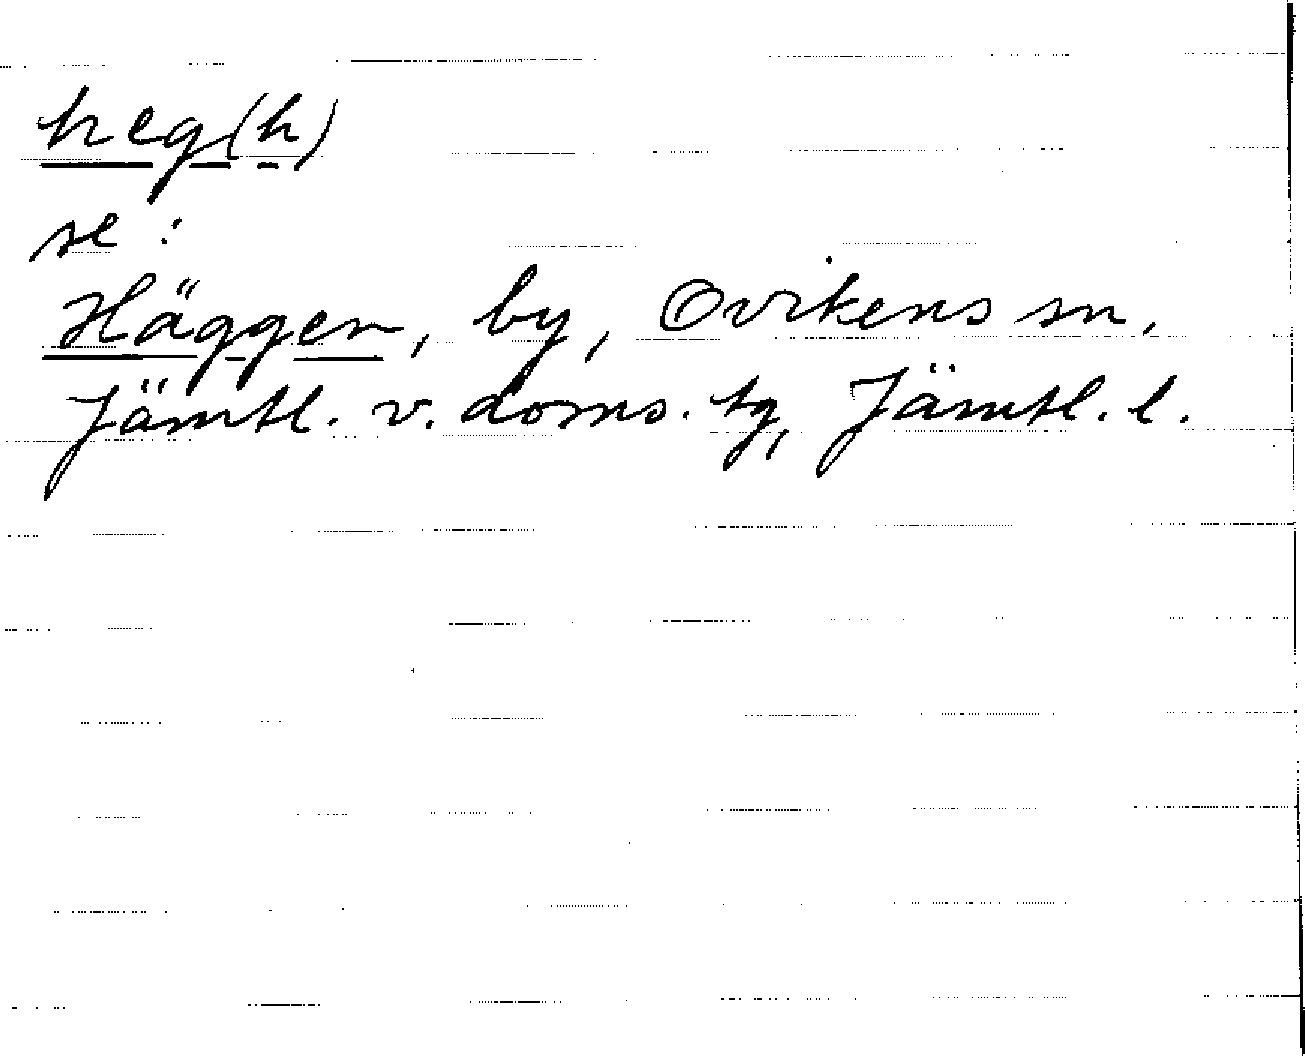 heg(h)
se:
Häggen, by, Ovikens sn,
Jämtl. v. doms. tg, Jämtl. l.